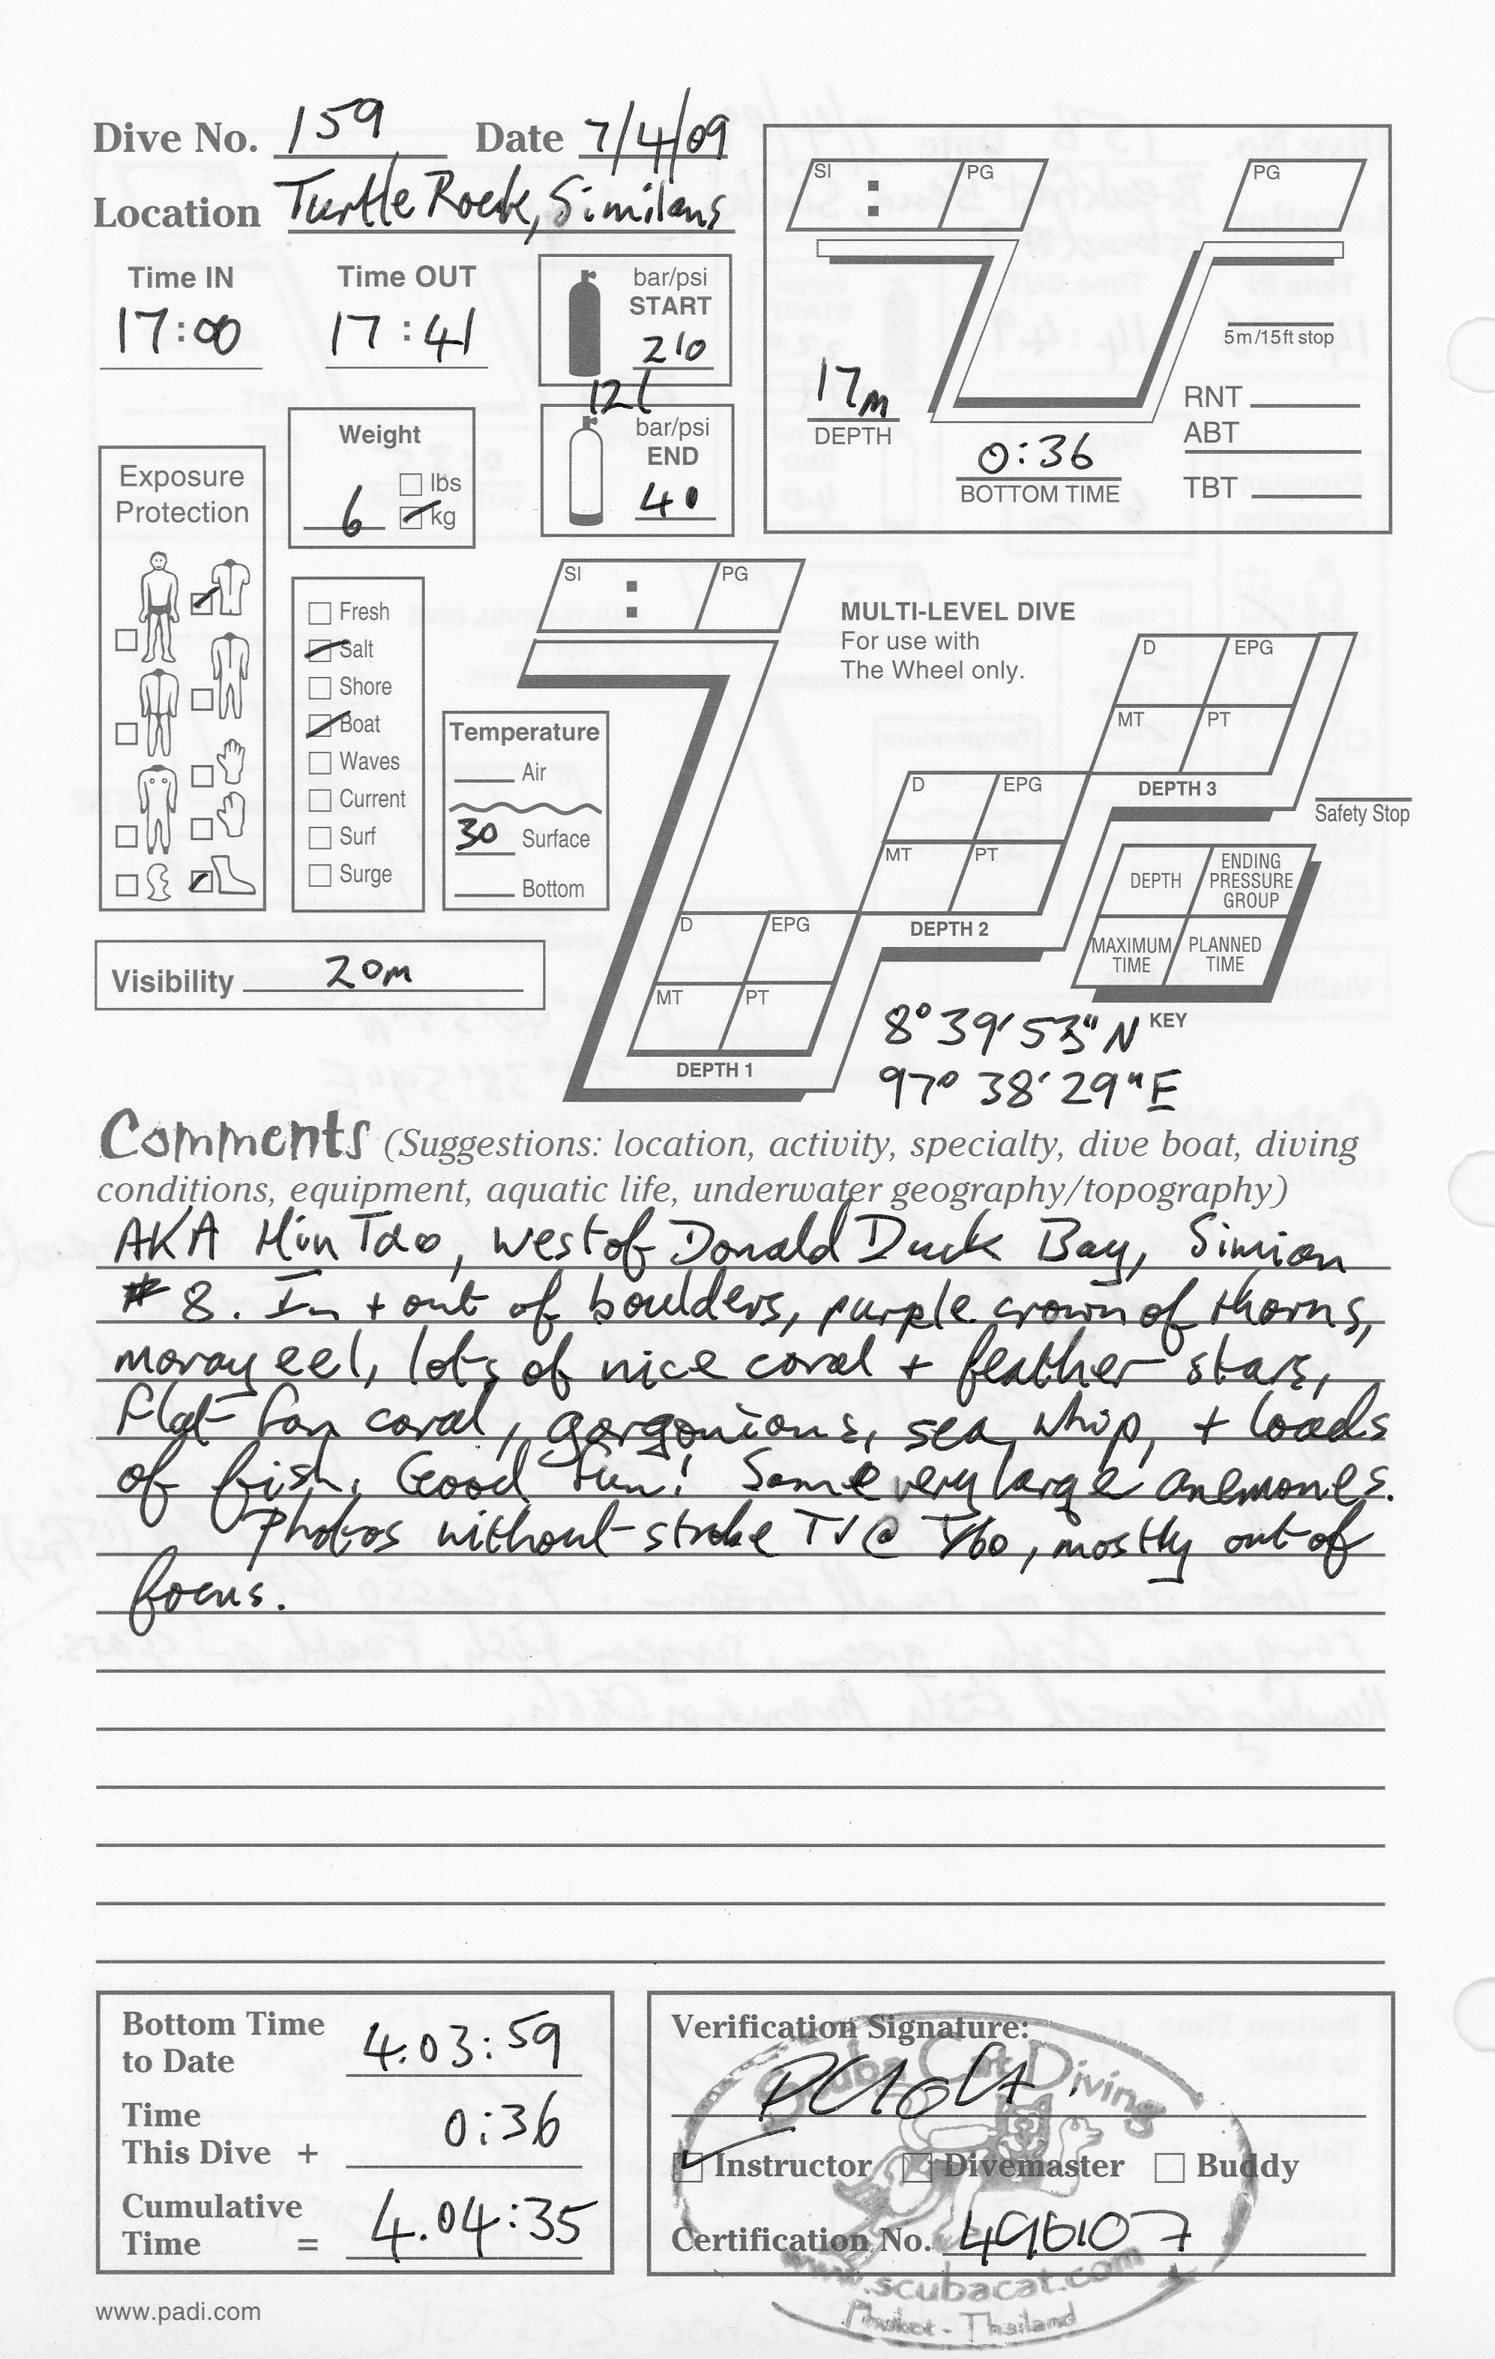 Dive No. 159 Date 7/4/09
Location Turtle Rock, Similans
Time IN Time OUT
17:00 17:41
bar/psi
START
210
12l
bar/psi
END
40
Weight
lbs
6 kg
Exposure
Protection
Fresh
Salt
Shore
Boat
Waves
Current
Surf
Surge
Temperature
Air
30 Surface
Bottom
Visibility 20m
SI : PG PG
5m/15ft stop
17m
DEPTH
0:36
BOTTOM TIME
RNT
ABT
TBT
SI : PG
MULTI-LEVEL DIVE
For use with
The Wheel only.
D EPG
MT PT
DEPTH 3
Safety Stop
D EPG
MT PT
DEPTH 2
D EPG
MT PT
DEPTH 1
DEPTH ENDING PRESSURE GROUP
MAXIMUM TIME PLANNED TIME
KEY
8° 39' 53" N
97° 38' 29" E
Comments (Suggestions: location, activity, specialty, dive boat, diving
conditions, equipment, aquatic life, underwater geography/topography)
AKA Hin Tao, west of Donald Duck Bay, Simian
# 8. In + out of boulders, purple crown of thorns,
moray eel, lots of nice coral + feather stars,
flat fan coral, gorgonians, sea whip, + loads
of fish. Good fun! Some very large anemones.
Photos without strobe TV @ 1/60, mostly out of
focus.
Bottom Time
to Date 4.03:59
Time
This Dive + 0:36
Cumulative
Time = 4.04:35
Verification Signature:
Instructor Divemaster Buddy
Certification No. 496107
Scuba Cat Diving
www.scubacat.com
Phuket - Thailand
www.padi.com